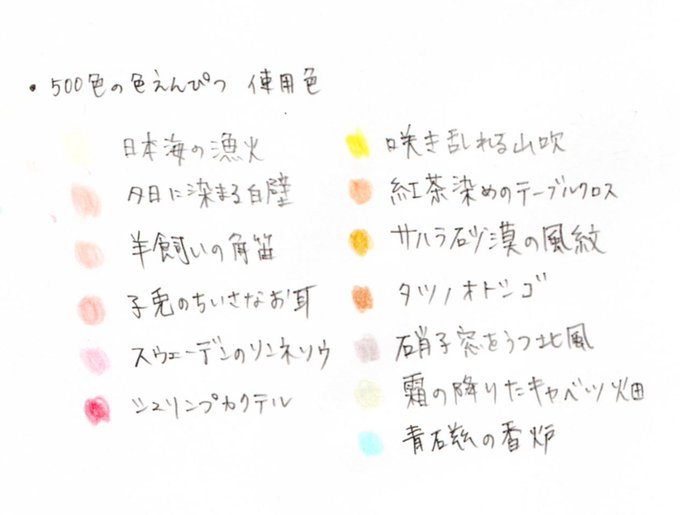 ・500色の色えんぴつ 使用色
日本海の漁火
夕日に染まる白壁
羊飼いの角笛
子兎のちいさなお耳
スウェーデンのリンネソウ
シュリンプカクテル
咲き乱れる山吹
紅茶染めのテーブルクロス
サハラ砂漠の風紋
タツノオトシゴ
硝子窓をうつ北風
霜の降りたキャベツ畑
青磁の香炉